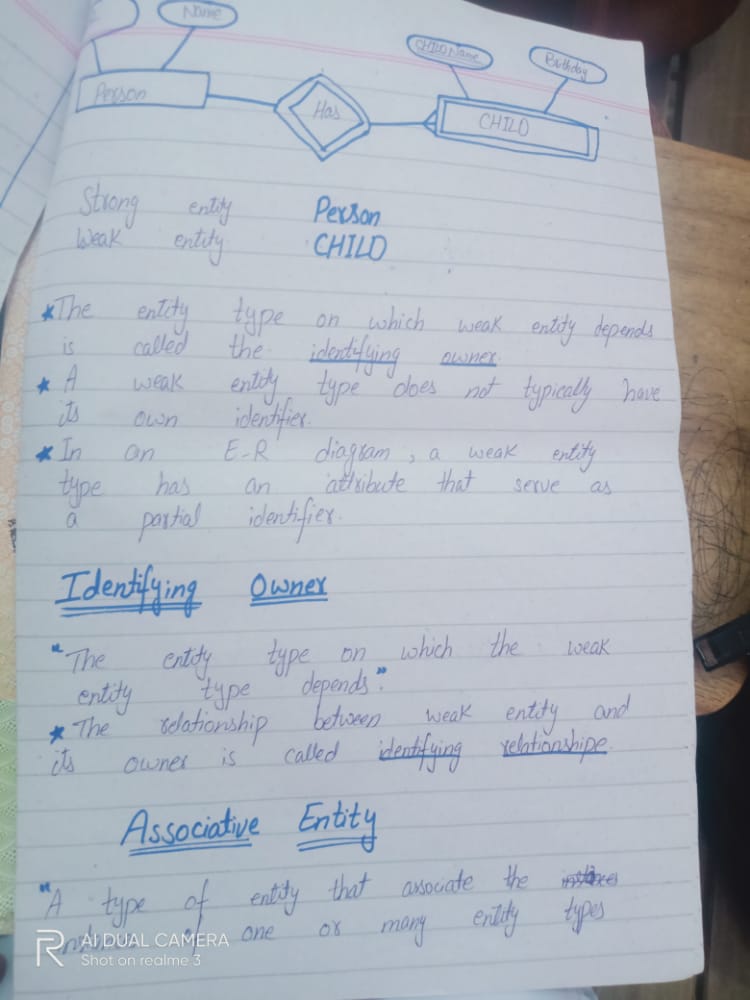 Name
CHILD Name
Birthday
Person
Has
CHILD
Strong entity Person
Weak entity CHILD
*The entity type on which weak entity depends
is called the identifying owner
* A weak entity type does not typically have
its own identifier.
* In an E-R diagram, a weak entity
type has an attribute that serve as
a partial identifier.
Identifying Owner
"The entity type on which the weak
entity type depends".
* The relationship between weak entity and
its owner is called identifying relationshipe.
Associative Entity
"A type of entity that associate the
of one or many entity types
R AI DUAL CAMERA
Shot on realme 3